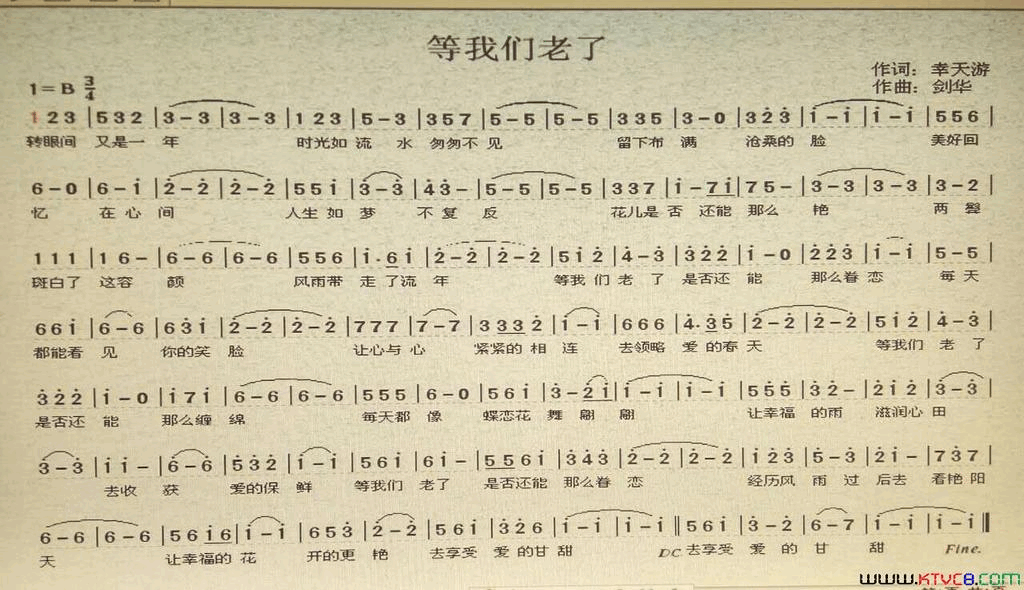 等我们老了
作词：幸天游
1=B 3/4
作曲：剑华
1 2 3 |5 3 2 |3 - 3 |3 - 3 |1 2 3 |5 - 3 |3 5 7 |5 - 5 |5 - 5 |3 3 5 |3 - 0 |3 2̇ 3̇ |i - i |i - i |5 5 6 |
转眼间 又是一 年 时光如 流 水 匆匆不 见 留下布 满 沧桑的 脸 美好回
6 - 0 |6 - i |2̇ - 2̇ |2̇ - 2̇ |5 5 i |3̇ - 3̇ |4̇ 3̇ - |5 - 5 |5 - 5 |3 3 7 |i - 7 i |7 5 - |3 - 3 |3 - 3 |3 - 2 |
忆 在 心 间 人生 如 梦 不 复 反 花儿是 否 还能 那么 艳 两 鬓
1 1 1 |1 6 - |6 - 6 |6 - 6 |5 5 6 |i · 6 i |2̇ - 2̇ |2̇ - 2̇ |5 i 2̇ |4̇ - 3̇ |3̇ 2̇ 2̇ |i - 0 |2̇ 2̇ 3̇ |i - i |5 - 5 |
斑白了 这容 颜 风雨带 走 了流 年 等我 们 老 了 是否还 能 那么眷 恋 每 天
6 6 i |6 - 6 |6 3̇ i |2̇ - 2̇ |2̇ - 2̇ |7 7 7 |7 - 7 |3 3 3 2̇ |i - i |6 6 6 |4̇ · 3̇ 5̇ |2̇ - 2̇ |2̇ - 2̇ |5 i 2̇ |4̇ - 3̇ |
都能看 见 你的笑 脸 让心与 心 紧紧的 相 连 去领略 爱 的春 天 等我们 老 了
3̇ 2̇ 2̇ |i - 0 |i 7 i |6 - 6 |6 - 6 |5 5 5 |6 - 0 |5 6 i |3̇ - 2̇ i |i - i |i - i |5̇ 5̇ 5̇ |3̇ 2̇ - |2̇ i 2̇ |3̇ - 3̇ |
是否还 能 那么缠 绵 每天都 像 蝶恋花 舞 翩 翩 让幸福 的雨 滋润心 田
3̇ - 3̇ |i i - |6 - 6 |5̇ 3̇ 2̇ |i - i |5 6 i |6 i - |5 5 6 i |3̇ 4̇ 3̇ |2̇ - 2̇ |2̇ - 2̇ |i 2̇ 3̇ |5̇ - 3̇ |2̇ i - |7 3̇ 7 |
去收 获 爱的保 鲜 等我们 老了 是否还能 那么眷 恋 经历风 雨 过 后去 看艳阳
6 - 6 |6 - 6 |5 6 i 6 |i - i |6 5 3̇ |2̇ - 2̇ |5 6 i |3̇ 2̇ 6 |i - i |i - i ‖5 6 i |3̇ - 2̇ |6 - 7 |i - i |i - i ‖
天 让幸福的 花 开的更 艳 去享受 爱 的甘 甜 DC 去享受 爱 的 甘 甜 Fine.
www.KTVC8.com